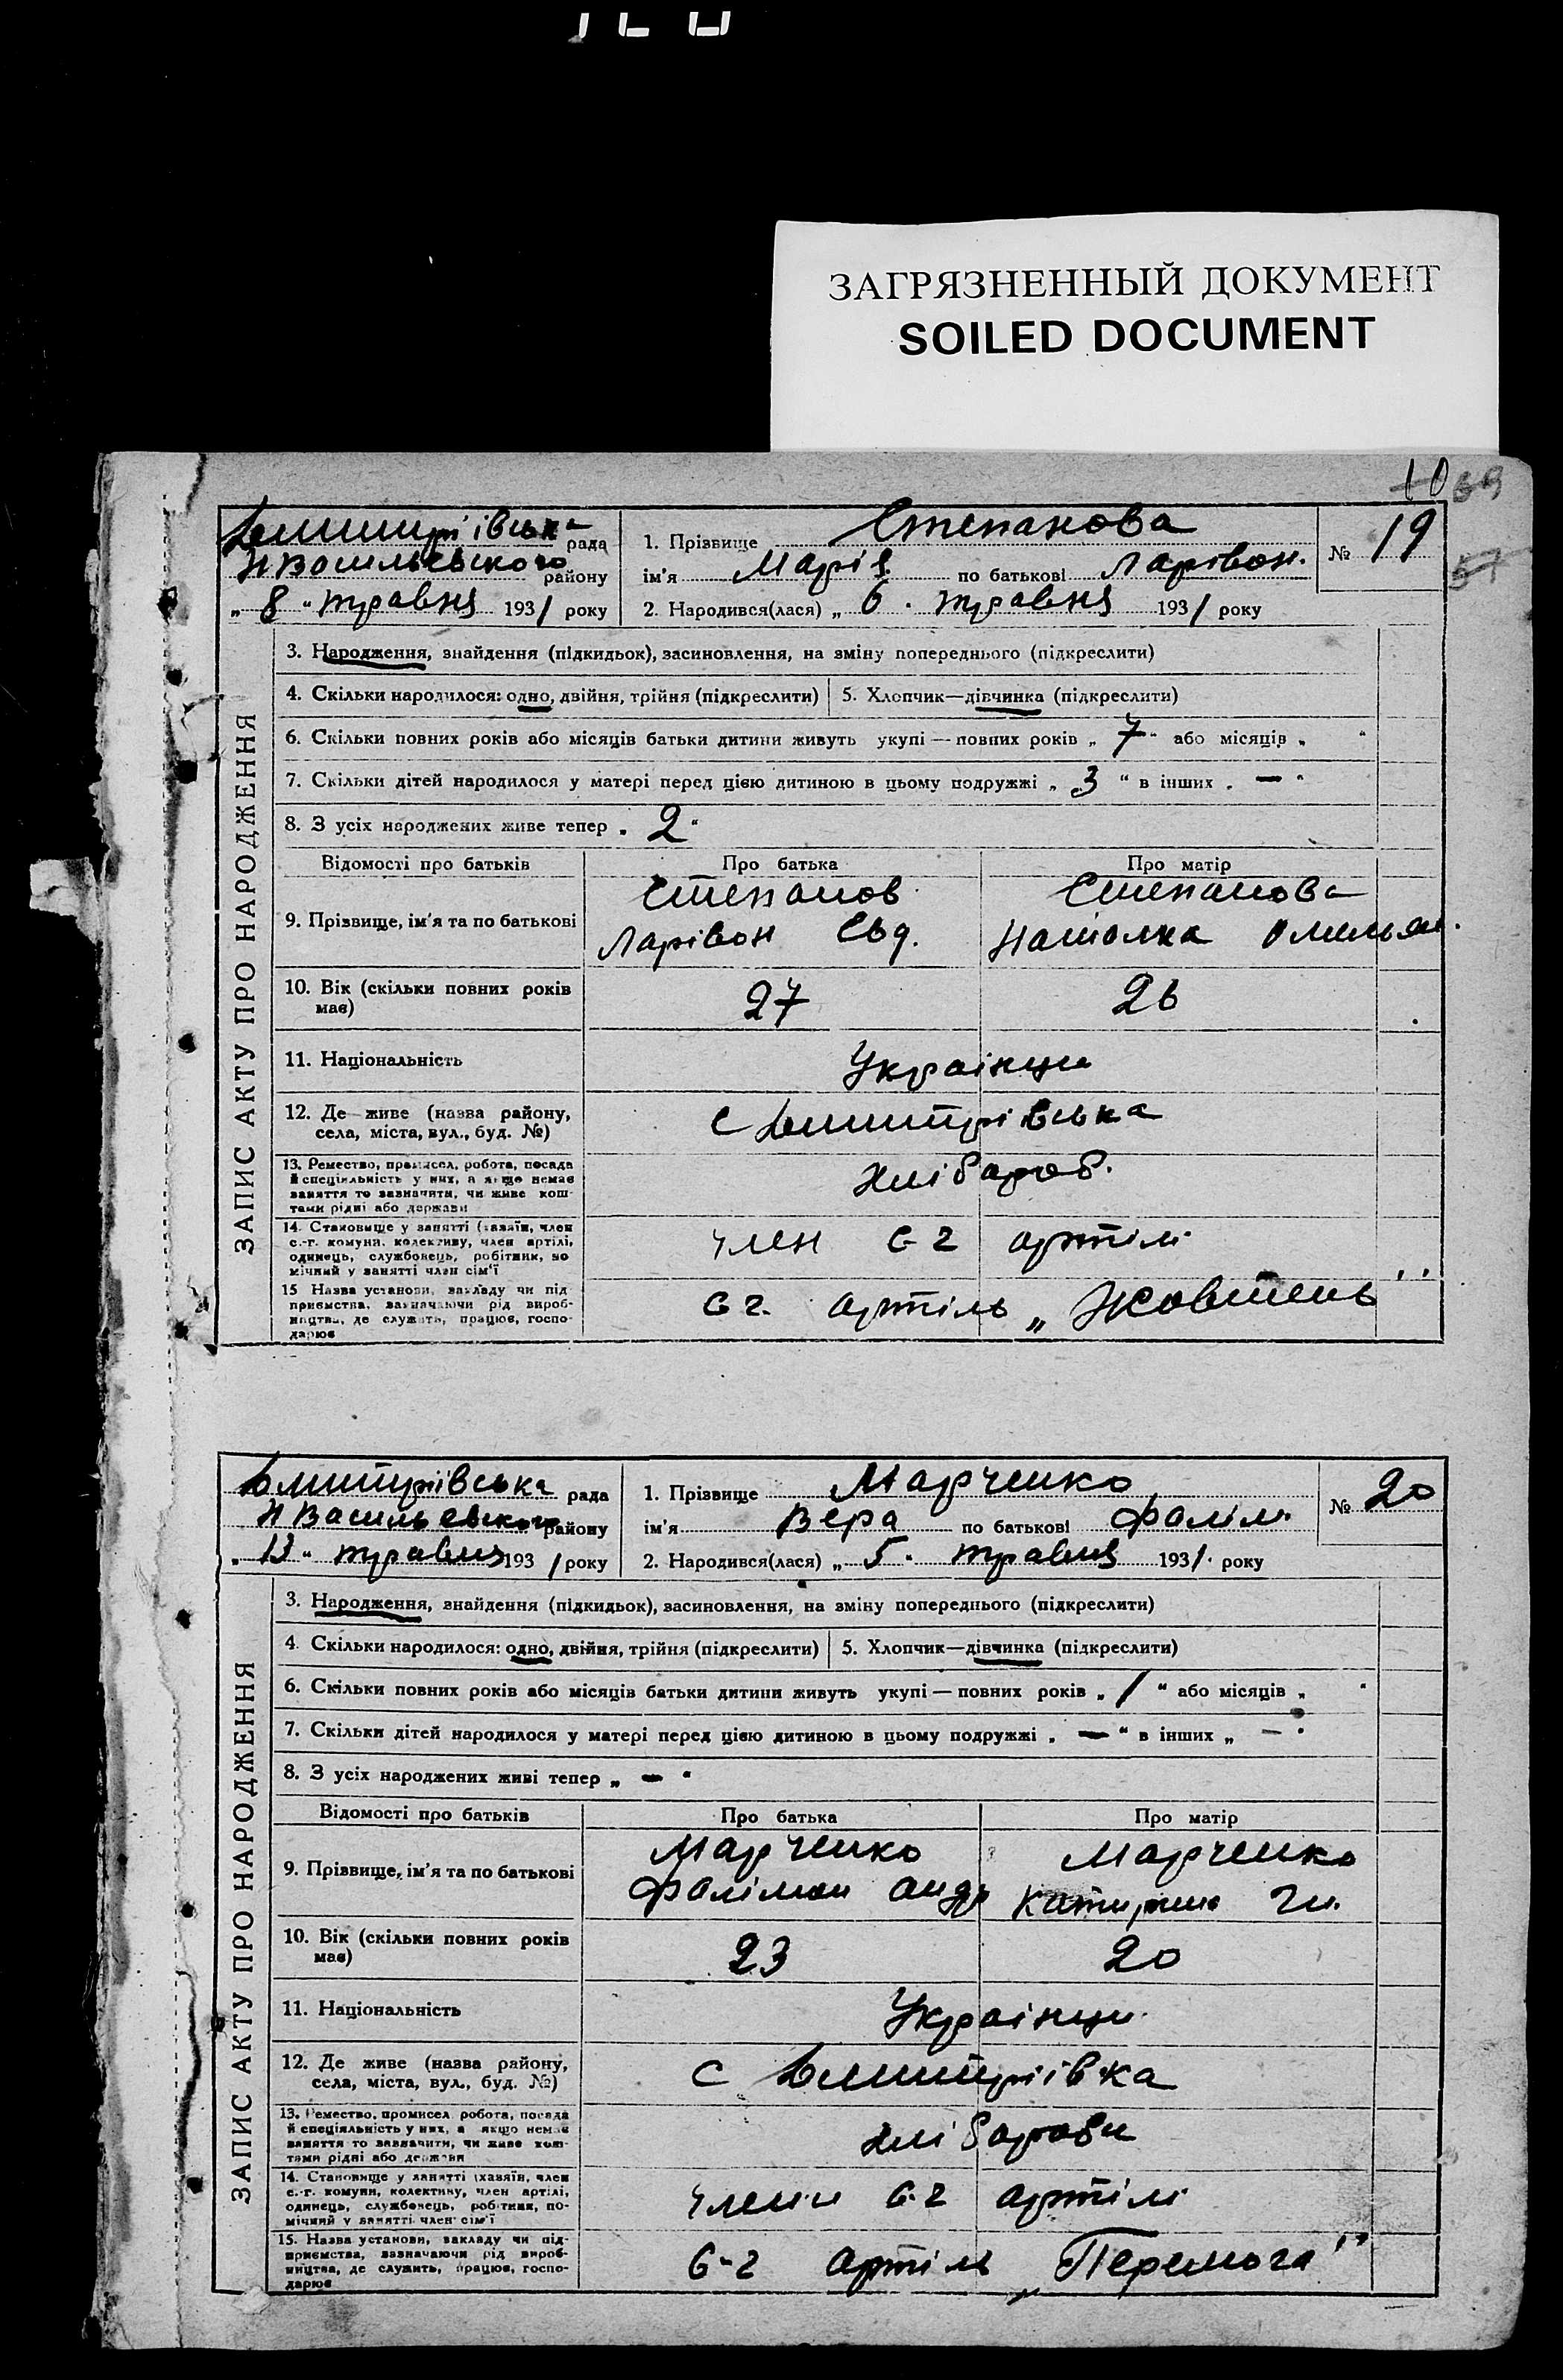 ЗАГРЯЗНЕННЫЙ ДОКУМЕНТ
SOILED DOCUMENT
10 69
57
Дмитріївська рада
Н Васильевского району
„ 8 " травня 1931 року
1. Прізвище Степанова
ім'я Марія по батькові Ларівон.
2. Народився(лася) „ 6 " травня 1931 року
№ 19
ЗАПИС АКТУ ПРО НАРОДЖЕННЯ
3. Народження, знайдення (підкидьок), засиновлення, на зміну попереднього (підкреслити)
4. Скільки народилося: одно, двійня, трійня (підкреслити)
5. Хлопчик—дівчинка (підкреслити)
6. Скільки повних років або місяців батьки дитини живуть укупі — повних років „ 7 " або місяців „ "
7. Скільки дітей народилося у матері перед цією дитиною в цьому подружжі „ 3 " в інших „ — "
8. З усіх народжених живе тепер „ 2 "
Відомості про батьків Про батька Про матір
9. Прізвище, ім'я та по батькові
Степанов Степанова
Ларівон Євд. Наталка Омельян.
10. Вік (скільки повних років має) 27 26
11. Національність Українци
12. Де живе (назва району, села, міста, вул., буд. №) С Дмитрівська
13. Ремество, промисел, робота, посада й спеціяльність у них, а якщо немає заняття то зазначити, чи живе коштами рідні або держави
Хлібороб.
14. Становище у занятті (хазяїн, член с.-г. комуни, колективу, член артілі, одинець, службовець, робітник, помічний у занятті член сім'ї
член с г артілі
15 Назва установи, закладу чи підприємства, зазначаючи рід виробництва, де служить, працює, господарює
с г. артіль „Жовтень"
Дмитріївська рада
Н Васильевского району
„ 13 " травня 1931 року
1. Прізвище Марченко
ім'я Вера по батькові Филім.
2. Народився(лася) „ 5 " травня 1931. року
№ 20
ЗАПИС АКТУ ПРО НАРОДЖЕННЯ
3. Народження, знайдення (підкидьок), засиновлення, на зміну попереднього (підкреслити)
4. Скільки народилося: одно, двійня, трійня (підкреслити)
5. Хлопчик—дівчинка (підкреслити)
6. Скільки повних років або місяців батьки дитини живуть укупі — повних років „ 1 " або місяців „ "
7. Скільки дітей народилося у матері перед цією дитиною в цьому подружжі „ — " в інших „ — "
8. З усіх народжених живі тепер „ — "
Відомості про батьків Про батька Про матір
9. Прізвище, ім'я та по батькові
Марченко Марченко
Филімон Андр Катирина
10. Вік (скільки повних років має) 23 20
11. Національність Українци
12. Де живе (назва району, села, міста, вул., буд. №) С Дмитріївка
13. Ремество, промисел робота, посада й спеціяльність у них, а якщо немає заняття то зазначити, чи живе коштами рідні або держави
Хлібороби
14. Становище у занятті (хазяїн, член с.-г. комуни, колективу, член артілі, одинець, службовець, робітник, помічний у занятті член сім'ї
члени с-г артілі
15. Назва установи, закладу чи підприємства, зазначаючи рід виробництва, де служить, працює, господарює
с-г артіль „Перемога"